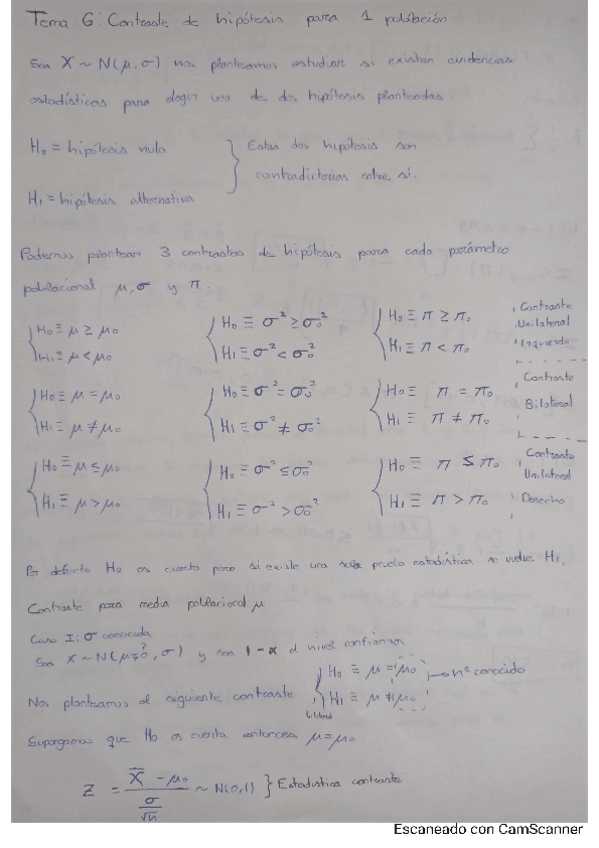 Tema 6: Contraste de hipótesis para 1 población
Sea X ~ N(μ, σ) nos planteamos estudiar si existen evidencias
estadísticas para elegir una de dos hipótesis planteadas
H₀ = hipótesis nula
H₁ = hipótesis alternativa
} Estas dos hipótesis son
contradictorias entre sí.
Podemos plantear 3 contrastes de hipótesis para cada parámetro
poblacional μ, σ y π:
{ H₀ ≡ μ ≥ μ₀ { H₀ ≡ σ² ≥ σ₀² { H₀ ≡ π ≥ π₀ Contraste
Unilateral
H₁ ≡ μ < μ₀ H₁ ≡ σ² < σ₀² H₁ ≡ π < π₀ Izquierdo
{ H₀ ≡ μ = μ₀ { H₀ ≡ σ² = σ₀² { H₀ ≡ π = π₀ Contraste
H₁ ≡ μ ≠ μ₀ H₁ ≡ σ² ≠ σ₀² H₁ ≡ π ≠ π₀ Bilateral
{ H₀ ≡ μ ≤ μ₀ { H₀ ≡ σ² ≤ σ₀² { H₀ ≡ π ≤ π₀ Contraste
Unilateral
H₁ ≡ μ > μ₀ H₁ ≡ σ² > σ₀² H₁ ≡ π > π₀ Derecho
Por defecto H₀ es cierto pero si existe una prueba estadística se vuelve H₁.
Contraste para media poblacional μ
Caso I: σ conocida
Sea X ~ N(μ=?, σ) y sea 1-α el nivel confianza
Nos planteamos el siguiente contraste { H₀ ≡ μ = μ₀ → nº conocido
H₁ ≡ μ ≠ μ₀
Supongamos que H₀ es cierta entonces μ = μ₀
Z = (X̄ - μ₀) / (σ/√n) ~ N(0,1) } Estadística contraste
Escaneado con CamScanner